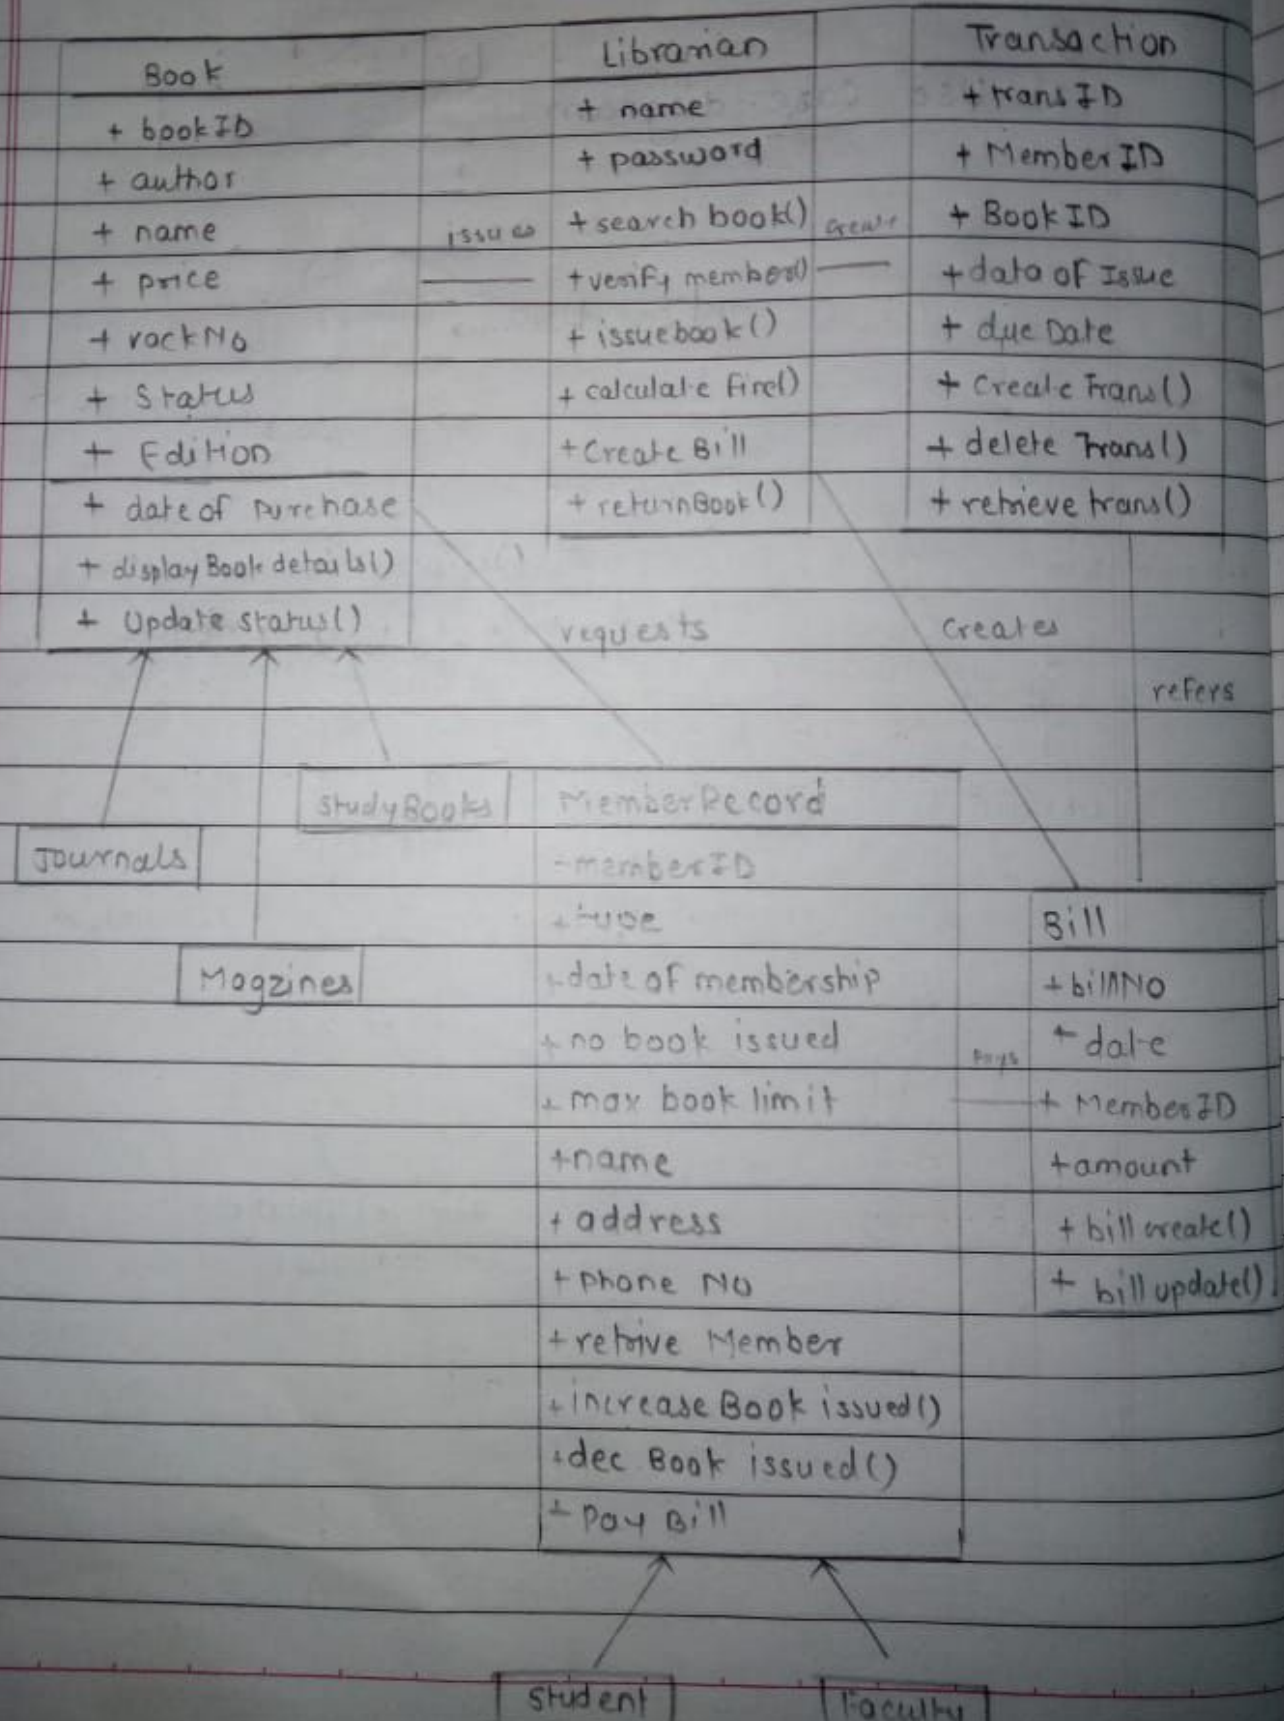 Book
+ bookID
+ author
+ name
+ price
+ rackNo
+ Status
+ Edition
+ date of purchase
+ display Book details()
+ Update status()
issues
Librarian
+ name
+ password
+ search book()
+ verify member()
+ issuebook()
+ calculate fine()
+ Create Bill
+ returnBook()
Create
Transaction
+ transID
+ MemberID
+ BookID
+ data of Issue
+ due Date
+ Create Trans()
+ delete Trans()
+ retrieve trans()
requests
Creates
refers
StudyBooks
Journals
Magzines
MemberRecord
-memberID
+ type
+ date of membership
+ no book issued
+ max book limit
+name
+ address
+ Phone No
+ retrive Member
+ increase Book issued()
+dec Book issued()
+ Pay Bill
Pays
Bill
+ billNo
+ date
+ MemberID
+amount
+ bill create()
+ bill update()
Student
Faculty